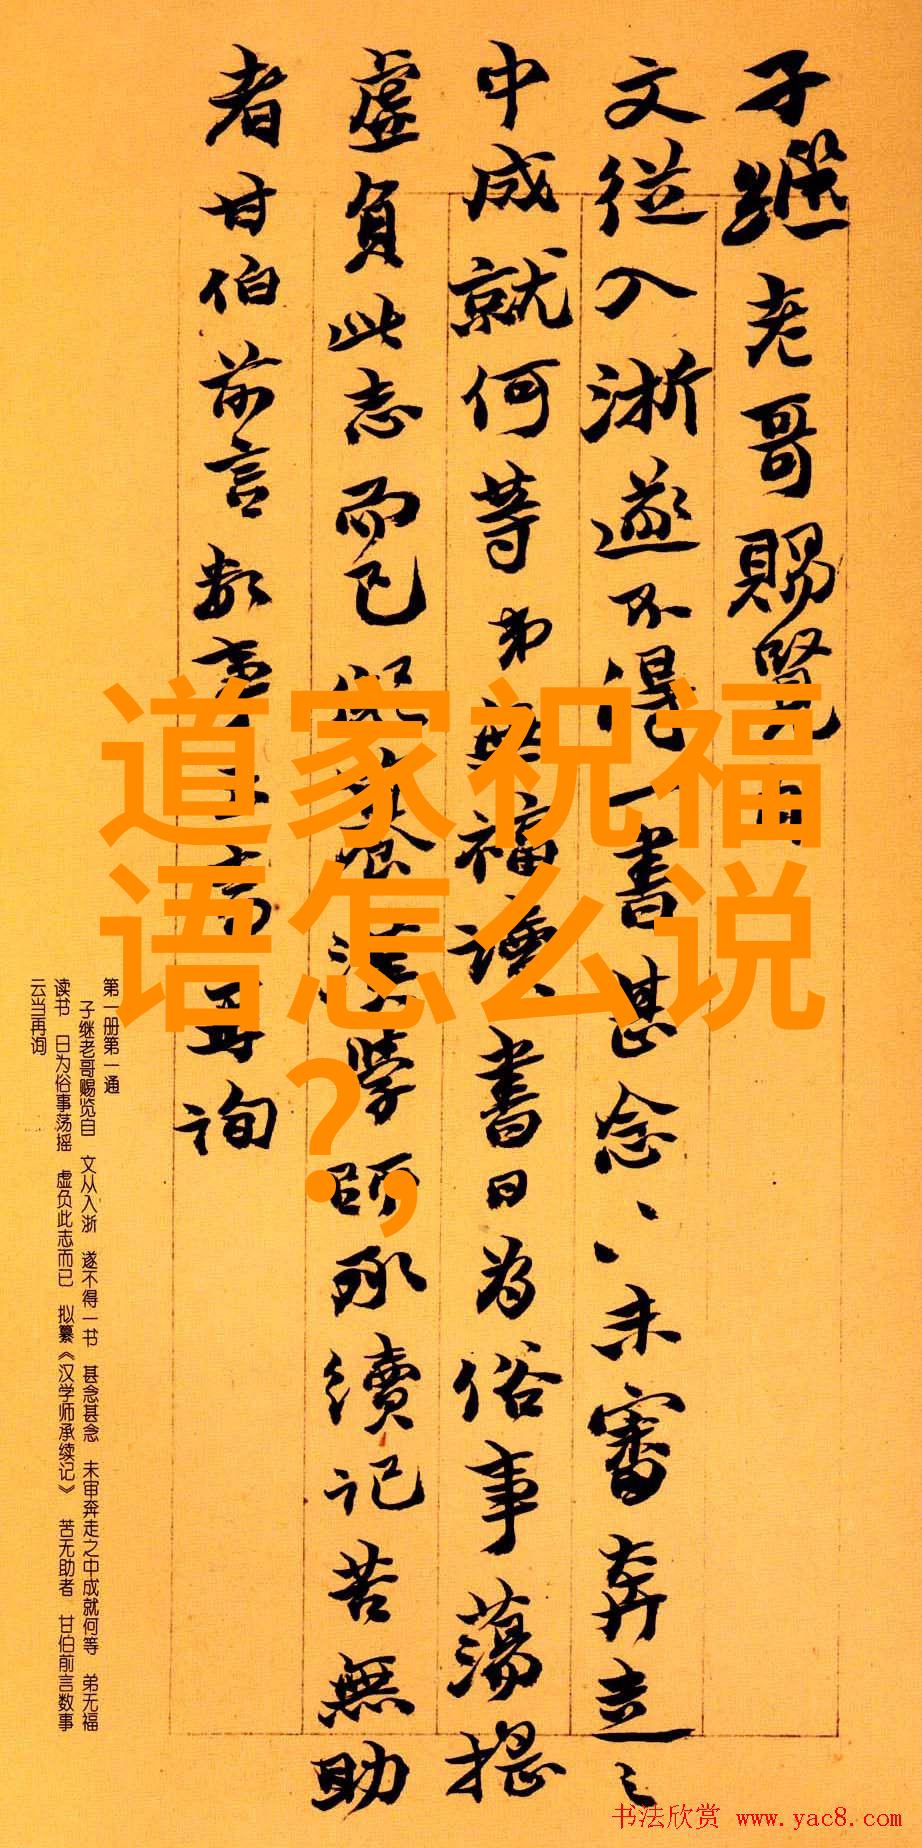 子继老哥赐览自
文從入浙遂不得一書甚念〻未審奔走之
中成就何等弟無福讀書日為俗事蕩摇
虚負此志而已擬纂漢學師承續記苦無助
者甘伯前言數事云當再詢
道家祝福
语怎么说
?,
第一册第一通
子继老哥赐览自 文从入浙 遂不得一书 甚念甚念 未审奔走之中成就何等 弟无福
读书 日为俗事荡摇 虚负此志而已 拟纂《汉学师承续记》 苦无助者 甘伯前言数事
云当再询
书法欣赏 www.yac8.com